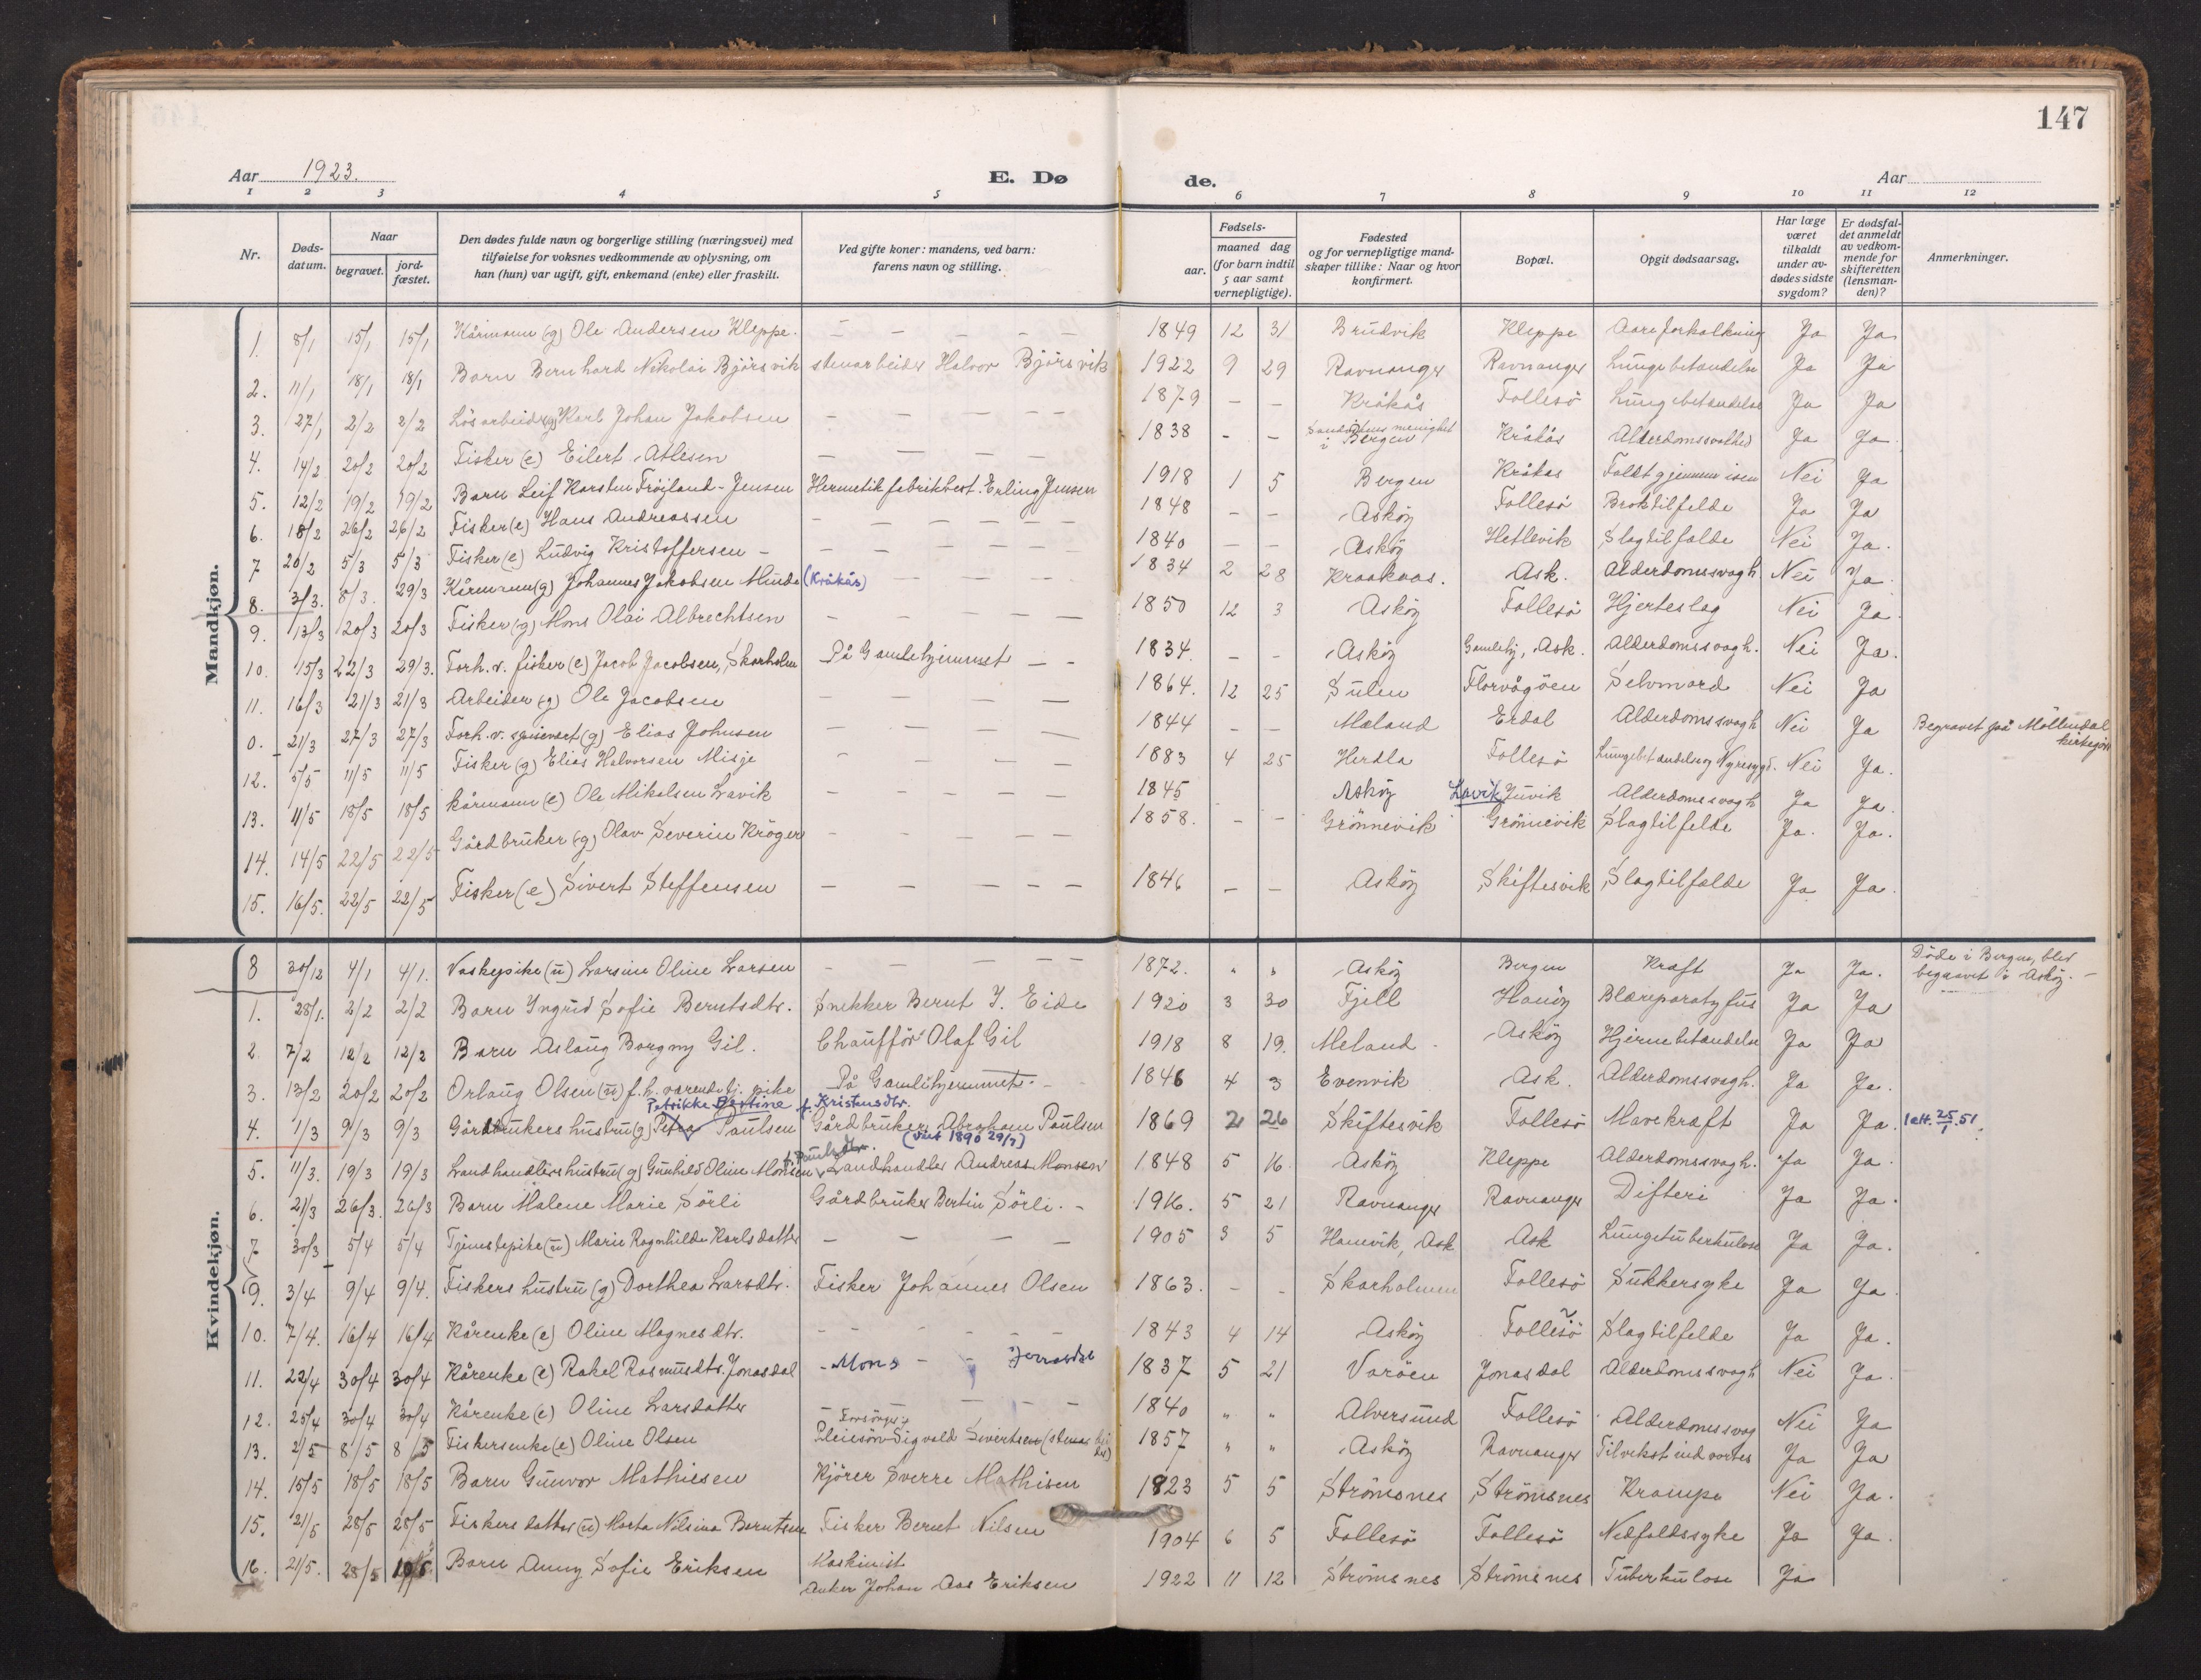 147
Aar 1923. E. Døde. Aar
1 2 3 4 5 6 7 8 9 10 11 12
Nr. Dødsdatum. Naar begravet. jordfæstet. Den dødes fulde navn og borgerlige stilling (næringsvei) med tilføielse for voksnes vedkommende av oplysning, om han (hun) var ugift, gift, enkemand (enke) eller fraskilt. Ved gifte koner: mandens, ved barn: farens navn og stilling. Fødsels- aar. maaned dag (for barn indtil 5 aar samt vernepligtige). Fødested og for vernepligtige mandskaper tillike: Naar og hvor konfirmert. Bopæl. Opgit dødsaarsag. Har læge været tilkaldt under avdødes sidste sygdom? Er dødsfaldet anmeldt av vedkommende for skifteretten (lensmanden)? Anmerkninger.
Mandkjøn.
1. 8/1 15/1 15/1 Kårmann (g) Ole Andersen Kleppe. — 1849 12 31 Brudvik Kleppe Aareforkalkning Ja Ja
2. 11/1 18/1 18/1 Barn Bernhard Nikolai Bjørsvik stenarbeider Halvor Bjørsvik 1922 9 29 Ravnanger Ravnanger Lungebetændelse Ja Ja
3. 27/1 2/2 2/2 Løsarbeider (g) Karl Johan Jakobsen — 1879 — — Kråkås Follesø Lungebetændelse Ja Ja
4. 14/2 20/2 20/2 Fisker (e) Eilert Atlesen — 1838 - - menighet i Bergen Kråkås Alderdomssvakhed Ja Ja
5. 12/2 19/2 19/2 Barn Leif Karsten Frøjland-Jensen Hermetikfabrikbest. Erling Jensen 1918 1 5 Bergen Kråkås Faldt gjennem isen Nei Ja
6. 18/2 26/2 26/2 Fisker (e) Hans Andreassen — 1848 — — Askøy Follesø Broktilfelde Ja Ja
7 20/2 5/3 5/3 Fisker (e) Ludvig Kristoffersen — 1840 — — Askøy Hetlevik Slagtilfælde Nei Ja.
8. 3/3. 8/3. 29/3 Kårmann (g) Johannes Jakobsen Minde (Kråkås) — 1834 2 28 Kraakaas. Ask. Alderdomssvagh. Nei Ja.
9. 13/3 20/3 20/3 Fisker (g) Mons Olai Albrechtsen — 1850 12 3 Askøy Follesø Hjerteslag Nei Ja.
10. 15/3 22/3 29/3. Forh. v. fisker (e) Jacob Jacobsen, Skarholm På Gamlehjemmet — 1834. — — Askøy Gamlehj, Ask. Alderdomssvagh. Nei Ja.
11. 16/3 21/3 21/3 Arbeider (g) Ole Jacobsen — 1864. 12 25 Sulen Florvågøen Selvmord Nei Ja
0. 21/3 27/3 27/3 Forh. v. (g) Elias Johnsen — 1844 — — Mæland Erdal Alderdomssvagh Nei Ja Begravet på Møllendal kirkegår
12. 5/5 11/5 11/5 Fisker (g) Elias Halvorsen Misje — 1883 4 25 Herdla Follesø Lungebetændelse og Nyresygd. Nei Ja.
13. 11/5 18/5 18/5 kårmann (e) Ole Mikalsen Lavik — 1845 - Askøy Lavik Juvik Alderdomssvagh Ja Ja.
14. 14/5 22/5 22/5 Gårdbruker (g) Olav Severin Krøger — 1858. - - Grønnevik Grønnevik Slagtilfelde Ja. Ja.
15. 16/5. 22/5 22/5 Fisker (e) Sivert Steffensen — 1846 — — Askøy Skiftesvik Slagtilfælde Ja Ja.
Kvindekjøn.
8 30/12 4/1 4/1. Vaskepike (u) Larsine Oline Larsen — 1872. " " Askøy Bergen Kræft Ja Ja. Døde i Bergen, blev begravet i Askøy. —
1. 28/1. 2/2 2/2 Barn Yngrid Sofie Berntsdtr. Snekker Bernt J. Eide 1920 3 30 Fjell Hanøy Blæreparatyfus Ja Ja
2. 7/2 12/2 12/2 Barn Aslaug Borgny Gil. Chauffør Olaf Gil 1918 8 19. Meland Askøy Hjernebetændelse Ja Ja
3. 13/2 20/2 20/2 Orlaug Olsen (u) f.h. pike På Gamlehjemmet. — 1846 4 3 Evenvik Ask. Alderdomssvagh. Ja Ja.
Petrikke Bertine f. Kristensdtr.
4. 1/3 9/3 9/3 Gårdbrukers hustru (g) Petra Paulsen Gårdbruker Abraham Paulsen (viet 1890 29/7) 1869 2 26 Skiftesvik Follesø Mavekræft Ja Ja. 1 att. 25/1.51.
f. Paulsdtr.
5. 11/3. 19/3 19/3 Landhandlers hustru (g) Gunhild Oline Monsen Landhandler Andreas Monsen 1848 5 16. Askøy Kleppe Alderdomssvagh. Ja Ja.
6. 21/3 26/3. 26/3 Barn Malene Marie Sørli Gårdbruker Bertin Sørli. — 1916. 5 21 Ravnanger Ravnanger Difteri Ja Ja.
7 30/3 5/4 5/4 Tjenestepike (u) Marie Ragnhilda Karlsdatter — 1905 3 5 Hanevik, Ask Ask Lungetuberkulose Ja Ja.
9. 3/4 9/4 9/4. Fiskers hustru (g) Dorthea Larsdtr. Fisker Johannes Olsen 1863. - - Skarholmen Follesø Sukkersyke Ja Ja.
10. 7/4. 16/4 16/4 Kårenke (e) Oline Magnesdtr. — 1843 4 14 Askøy Follesø Slagtilfelde Ja Ja.
11. 22/4 30/4 30/4 Kårenke (e) Rakel Rasmusdtr. Jonasdal Mons Jonasdal 1837 5 21 Varøen Jonasdal Alderdomssvagh Nei Ja.
12. 25/4 30/4 30/4 Kårenke (e) Oline Larsdatter — 1840 " " Alversund Follesø Alderdomssvag Nei Ja
13. 2/5 8/5 8/5 Fiskersenke (e) Oline Olsen Forsørger: Pleiesøn Sigvald Sivertsen (stenarbeider) 1857 " " Askøy Ravnanger Tilvekst indvortes Ja Ja
14. 15/5 18/5 18/5 Barn Gunvor Mathiesen Kjører Sverre Mathisen 1923 5 5 Strømsnes Strømsnes Krampe Nei Ja.
15. 21/5 28/5 28/5 Fiskers datter (u) Marta Nilsina Berntsen Fisker Bernt Nilsen 1904 6 5 Follesø Follesø Nedfaldssyke Ja Ja.
16. 21/5. 28/5 Barn Anny Sofie Eriksen Maskinist Anker Johan Aas Eriksen 1922 11 12 Strømsnes Strømsnes Tuberkulose Ja